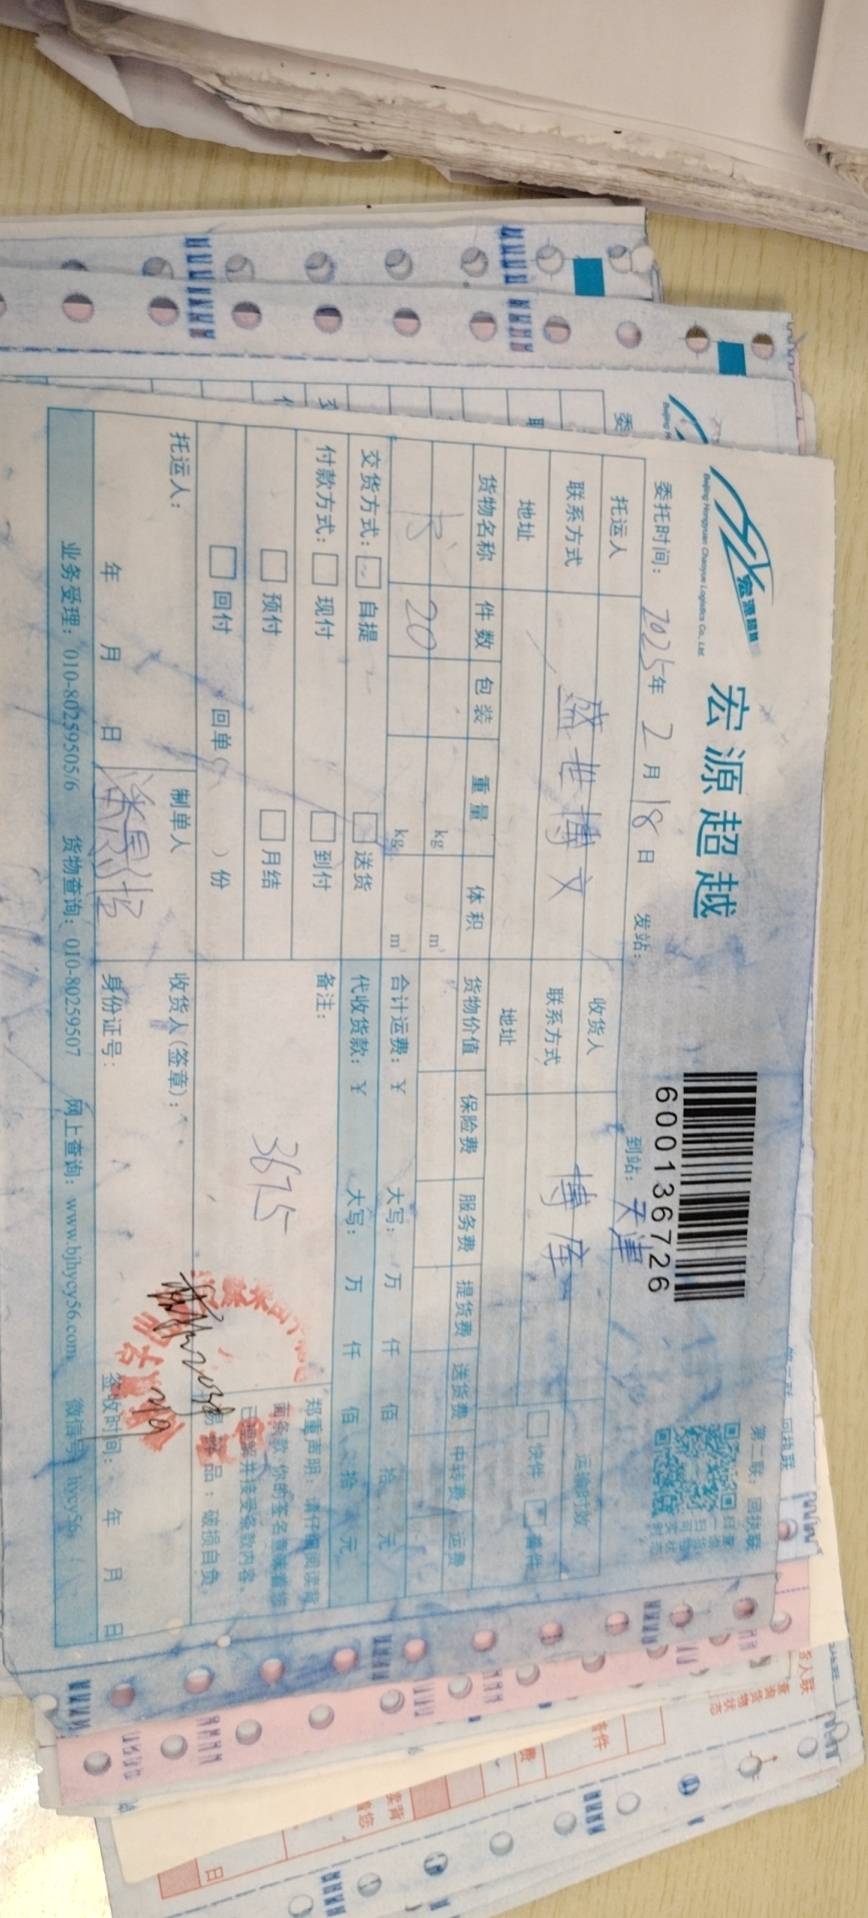 宏源超越
Beijing Hongyuan Chaoyue Logistics Co., Ltd.
宏源超越
600136726
第二联：回执联
委托时间：2025年2月18日 发站： 到站：天津
托运人 收货人 运输时效
联系方式 盛世博文 联系方式 博库 快件 普件
地址 地址
货物名称 件数 包装 重量 体积 货物价值 保险费 服务费 提货费 送货费 中转费 运费
书 20 kg m³
kg m³ 合计运费：¥ 大写： 万 仟 佰 拾 元
交货方式： 自提 送货 代收货款：¥ 大写： 万 仟 佰 拾 元
付款方式： 现付 到付 备注：
预付 月结 3675
回付 回单（ ）份
郑重声明：请仔细阅读背
面条款，你的签名意味着您
已理解并接受条款内容。
易碎品：破损自负。
托运人： 制单人 收货人（签章）：
年 月 日 身份证号： 签收时间： 年 月 日
业务受理：010-80259505/6 货物查询：010-80259507 网上查询：www.bjhycy56.com 微信号：hycy56